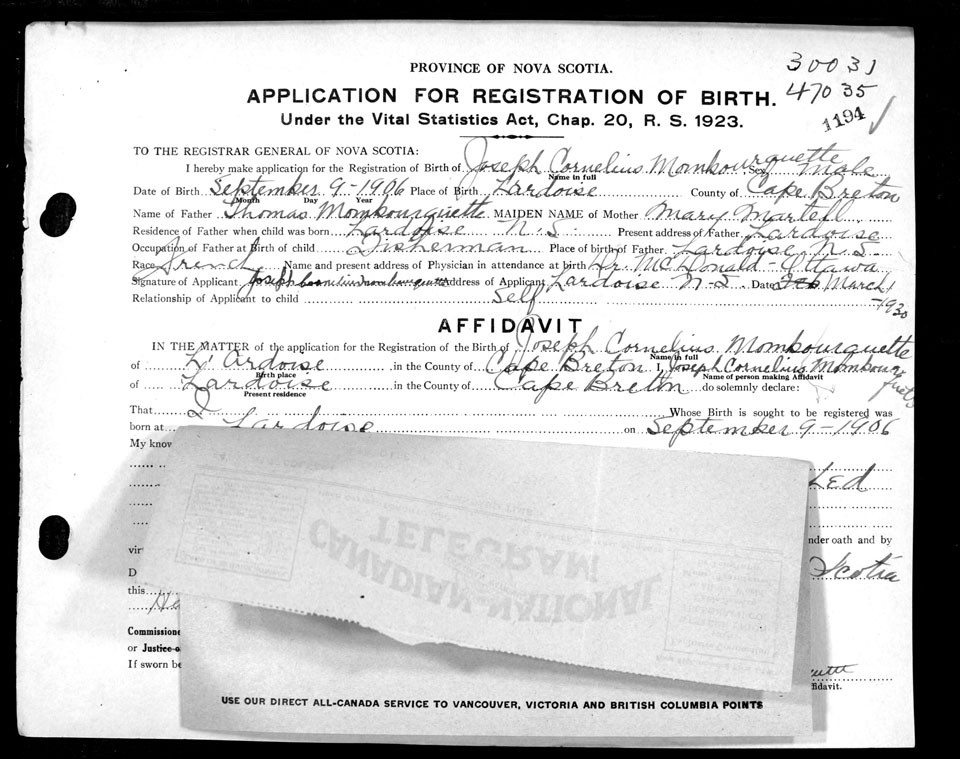 30031
PROVINCE OF NOVA SCOTIA.
47035
APPLICATION FOR REGISTRATION OF BIRTH.
1194
Under the Vital Statistics Act, Chap. 20, R. S. 1923.
TO THE REGISTRAR GENERAL OF NOVA SCOTIA:
I hereby make application for the Registration of Birth of Joseph Cornelius Mombourquette Sex Male
Name in full
Date of Birth September 9 - 1906 Place of Birth Lardoise County of Cape Breton
Month Day Year
Name of Father Thomas Mombourquette MAIDEN NAME of Mother Mary Martell
Residence of Father when child was born Lardoise N.S. Present address of Father Lardoise
Occupation of Father at Birth of child Fisherman Place of birth of Father Lardoise N.S.
Race French Name and present address of Physician in attendance at birth Dr. McDonald - Ottawa
Signature of Applicant Joseph Address of Applicant Lardoise N-S. Date March 1
Relationship of Applicant to child Self -1930
AFFIDAVIT
IN THE MATTER of the application for the Registration of the Birth of Joseph Cornelius Mombourquette
Name in full
of L'Ardoise in the County of Cape Breton I, Joseph Cornelius Mombourquette
Birth place Name of person making Affidavit
of Lardoise in the County of Cape Breton do solemnly declare:
Present residence
That I Whose Birth is sought to be registered was
born at Lardoise on September 9 - 1906
My know
Led
nder oath and by
vir
D Scotia
this
Commissione
or Justice o
If sworn be
uette
ffidavit.
CANADIAN-NATIONAL
TELEGRAM
USE OUR DIRECT ALL-CANADA SERVICE TO VANCOUVER, VICTORIA AND BRITISH COLUMBIA POINTS